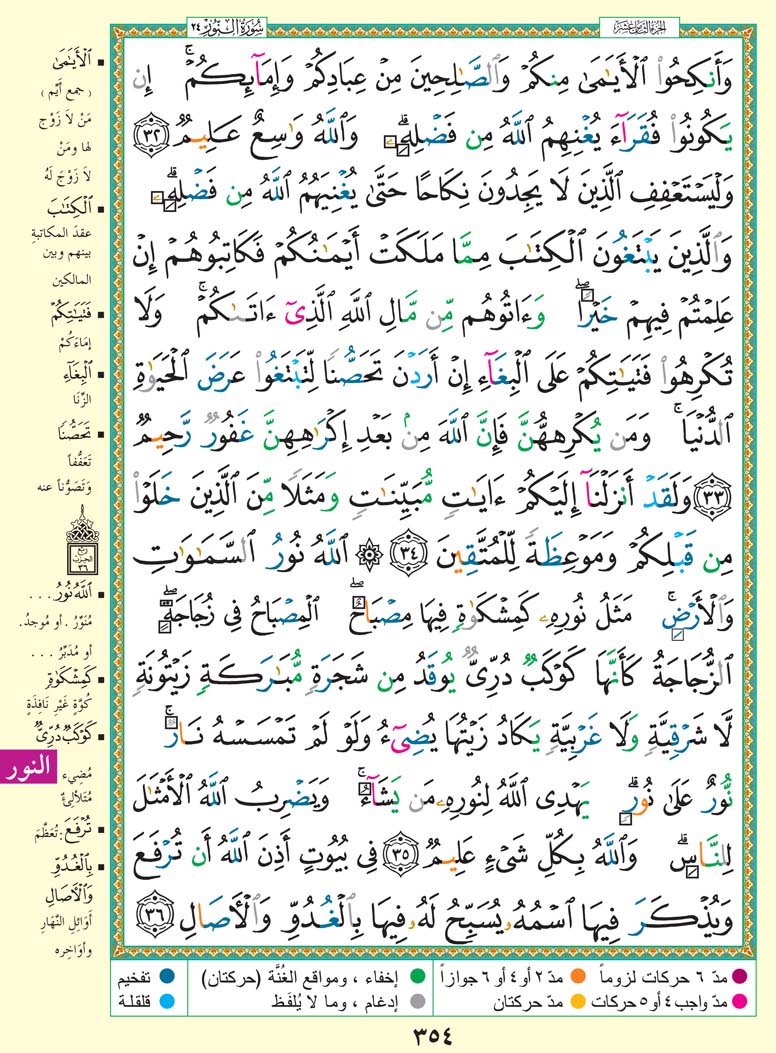 سُورَةُ النُّورِ ٢٤
الجزء الثامن عشر
وَأَنكِحُوا۟ ٱلْأَيَـٰمَىٰ مِنكُمْ وَٱلصَّـٰلِحِينَ مِنْ عِبَادِكُمْ وَإِمَآئِكُمْ ۚ إِن
يَكُونُوا۟ فُقَرَآءَ يُغْنِهِمُ ٱللَّهُ مِن فَضْلِهِۦ ۗ وَٱللَّهُ وَٰسِعٌ عَلِيمٌ ٣٢
وَلْيَسْتَعْفِفِ ٱلَّذِينَ لَا يَجِدُونَ نِكَاحًا حَتَّىٰ يُغْنِيَهُمُ ٱللَّهُ مِن فَضْلِهِۦ ۗ
وَٱلَّذِينَ يَبْتَغُونَ ٱلْكِتَـٰبَ مِمَّا مَلَكَتْ أَيْمَـٰنُكُمْ فَكَاتِبُوهُمْ إِنْ
عَلِمْتُمْ فِيهِمْ خَيْرًا ۖ وَءَاتُوهُم مِّن مَّالِ ٱللَّهِ ٱلَّذِىٓ ءَاتَىٰكُمْ ۚ وَلَا
تُكْرِهُوا۟ فَتَيَـٰتِكُمْ عَلَى ٱلْبِغَآءِ إِنْ أَرَدْنَ تَحَصُّنًا لِّتَبْتَغُوا۟ عَرَضَ ٱلْحَيَوٰةِ
ٱلدُّنْيَا ۚ وَمَن يُكْرِههُّنَّ فَإِنَّ ٱللَّهَ مِنۢ بَعْدِ إِكْرَٰهِهِنَّ غَفُورٌ رَّحِيمٌ
٣٣ وَلَقَدْ أَنزَلْنَآ إِلَيْكُمْ ءَايَـٰتٍ مُّبَيِّنَـٰتٍ وَمَثَلًا مِّنَ ٱلَّذِينَ خَلَوْا۟
مِن قَبْلِكُمْ وَمَوْعِظَةً لِّلْمُتَّقِينَ ٣٤ ۞ ٱللَّهُ نُورُ ٱلسَّمَـٰوَٰتِ
وَٱلْأَرْضِ ۚ مَثَلُ نُورِهِۦ كَمِشْكَوٰةٍ فِيهَا مِصْبَاحٌ ۖ ٱلْمِصْبَاحُ فِى زُجَاجَةٍ ۖ
ٱلزُّجَاجَةُ كَأَنَّهَا كَوْكَبٌ دُرِّىٌّ يُوقَدُ مِن شَجَرَةٍ مُّبَـٰرَكَةٍ زَيْتُونَةٍ
لَّا شَرْقِيَّةٍ وَلَا غَرْبِيَّةٍ يَكَادُ زَيْتُهَا يُضِىٓءُ وَلَوْ لَمْ تَمْسَسْهُ نَارٌ ۚ
نُّورٌ عَلَىٰ نُورٍ ۗ يَهْدِى ٱللَّهُ لِنُورِهِۦ مَن يَشَآءُ ۚ وَيَضْرِبُ ٱللَّهُ ٱلْأَمْثَـٰلَ
لِلنَّاسِ ۗ وَٱللَّهُ بِكُلِّ شَىْءٍ عَلِيمٌ ٣٥ فِى بُيُوتٍ أَذِنَ ٱللَّهُ أَن تُرْفَعَ
وَيُذْكَرَ فِيهَا ٱسْمُهُۥ يُسَبِّحُ لَهُۥ فِيهَا بِٱلْغُدُوِّ وَٱلْـَٔاصَالِ ٣٦
ٱلْأَيَـٰمَىٰ
( جمع أَيِّم )
مَنْ لاَ زَوْج
لها ومَنْ
لاَ زَوْجَ لَهُ
ٱلْكِتَـٰبَ
عقدَ المكاتبةِ
بينهم وبين
المالكين
فَتَيَـٰتِكُمْ
إمَاءَكُمْ
ٱلْبِغَآءِ
الزِّنَا
تَحَصُّنًا
تَعَفُّفاً
وَتَصَوُّناً عنه
ربع
الحزب
٣٦
ٱللَّهُ نُورُ . . .
مُنَوِّرُ . أو مُوجدُ .
أو مُدَبِّرُ . . .
كَمِشْكَوٰةٍ
كُوَّةٍ غَيْرِ نَافِذَةٍ
كَوْكَبٌ دُرِّىٌّ
مُضِيء
مُتَلأْلِئٌ
النور
تُرْفَعَ : تُعَظَّمَ
بِٱلْغُدُوِّ
وَٱلْـَٔاصَالِ
أَوَائِلِ النَّهَارِ
وأوَاخِرِه
مدّ ٦ حركات لزوماً مدّ ٢ أو ٤ أو ٦ جوازاً إخفاء ، ومواقع الغُنَّة (حركتان) تفخيم
مدّ واجب ٤ أو ٥ حركات مدّ حركتان إدغام ، وما لا يُلفَظ قلقلة
٣٥٤